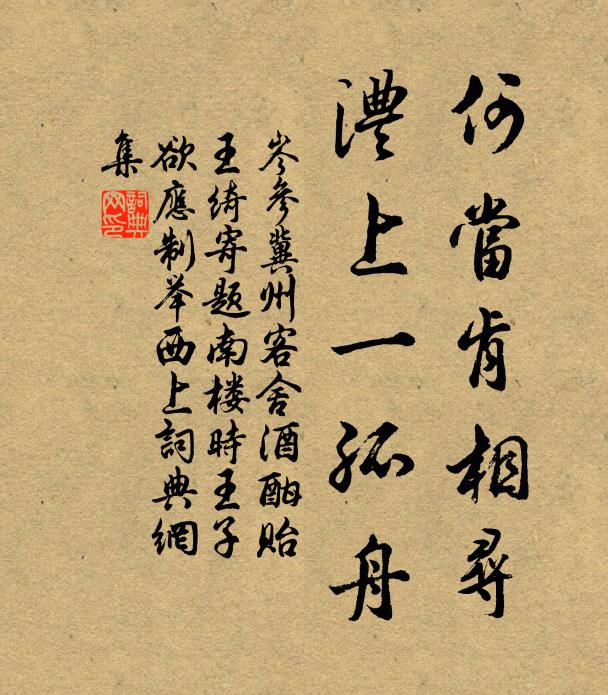 何當肯相尋
澧上一孤舟
岑參冀州客舍酒酣貽
王綺寄題南楼時王子
欲應制举西上詞典網
集
詞典网印